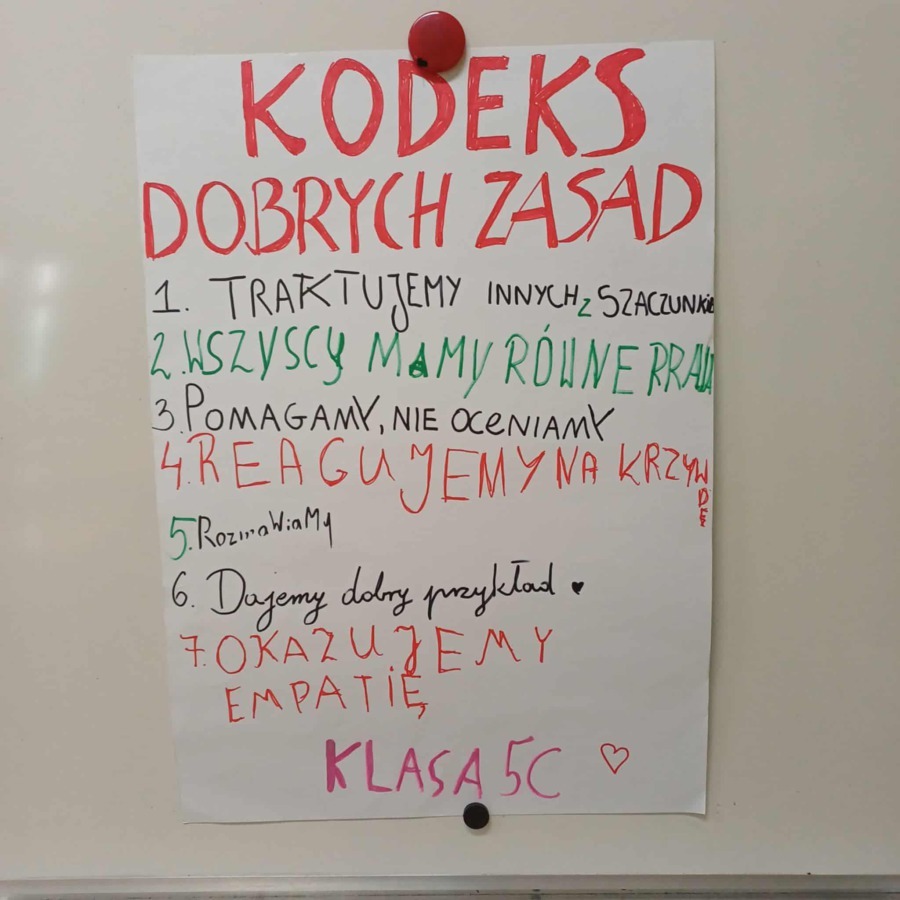 KODEKS
DOBRYCH ZASAD
1. TRAKTUJEMY INNYCH z SZACZUNKie
2. WSZYSCY MAMY RÓWNE PRAWA
3. POMAGAMY, NIE OCENIAMY
4. REAGUJEMY NA KRZYWDĘ
5. RozmaWiaMy
6. Dajemy dobry przykład
7. OKAZUJEMY
EMPATIĘ
KLASA 5C